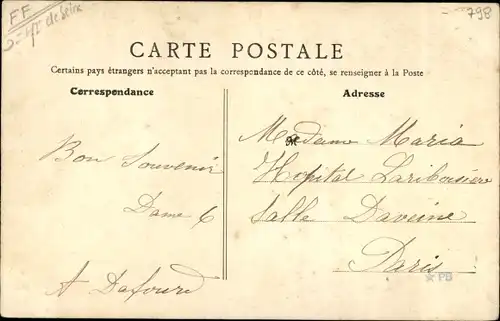 FF
798
CARTE POSTALE
Certains pays étrangers n'acceptant pas la correspondance de ce côté, se renseigner à la Poste
Correspondance
Adresse
Bon Souvenir
Dame 6
A Dafourd
Madame Maria
Hopital Lariboisiere
Salle Daveine
Paris
PB